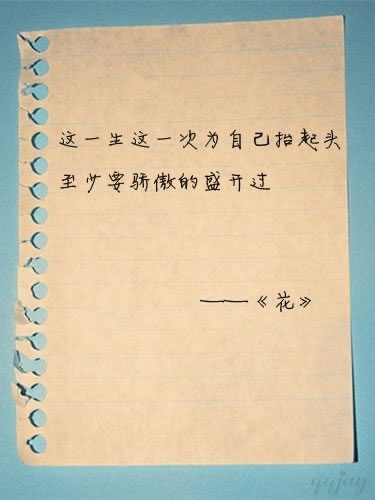 这一生这一次为自己抬起头
至少要骄傲的盛开过
——《花》
yyjuy